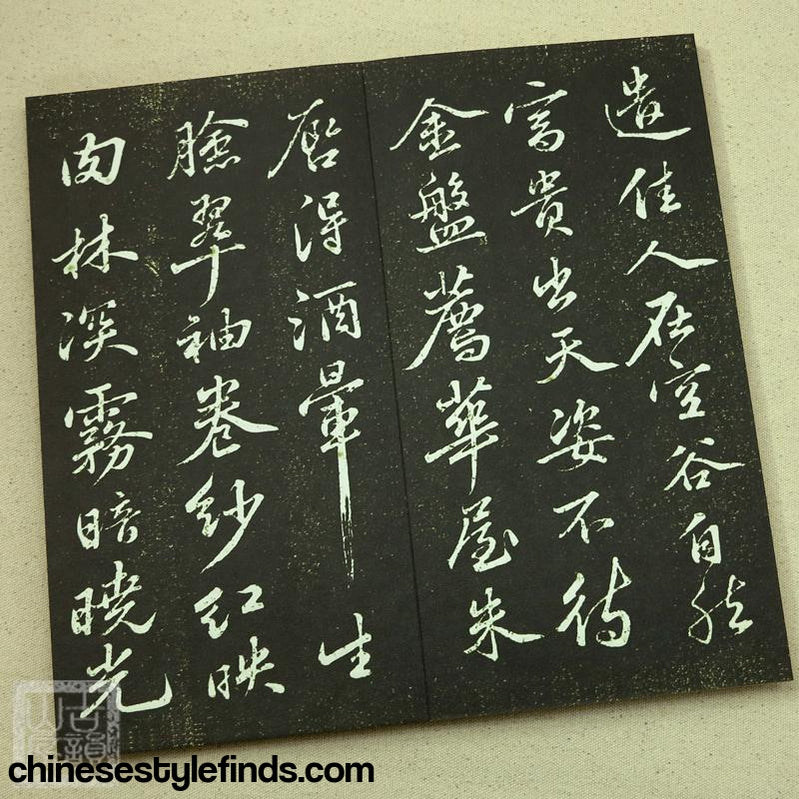 遣佳人在空谷自然
富貴出天姿不待
金盤薦華屋朱
唇得酒暈生
臉翠袖卷紗紅映
肉林深霧暗曉光
chinesestylefinds.com